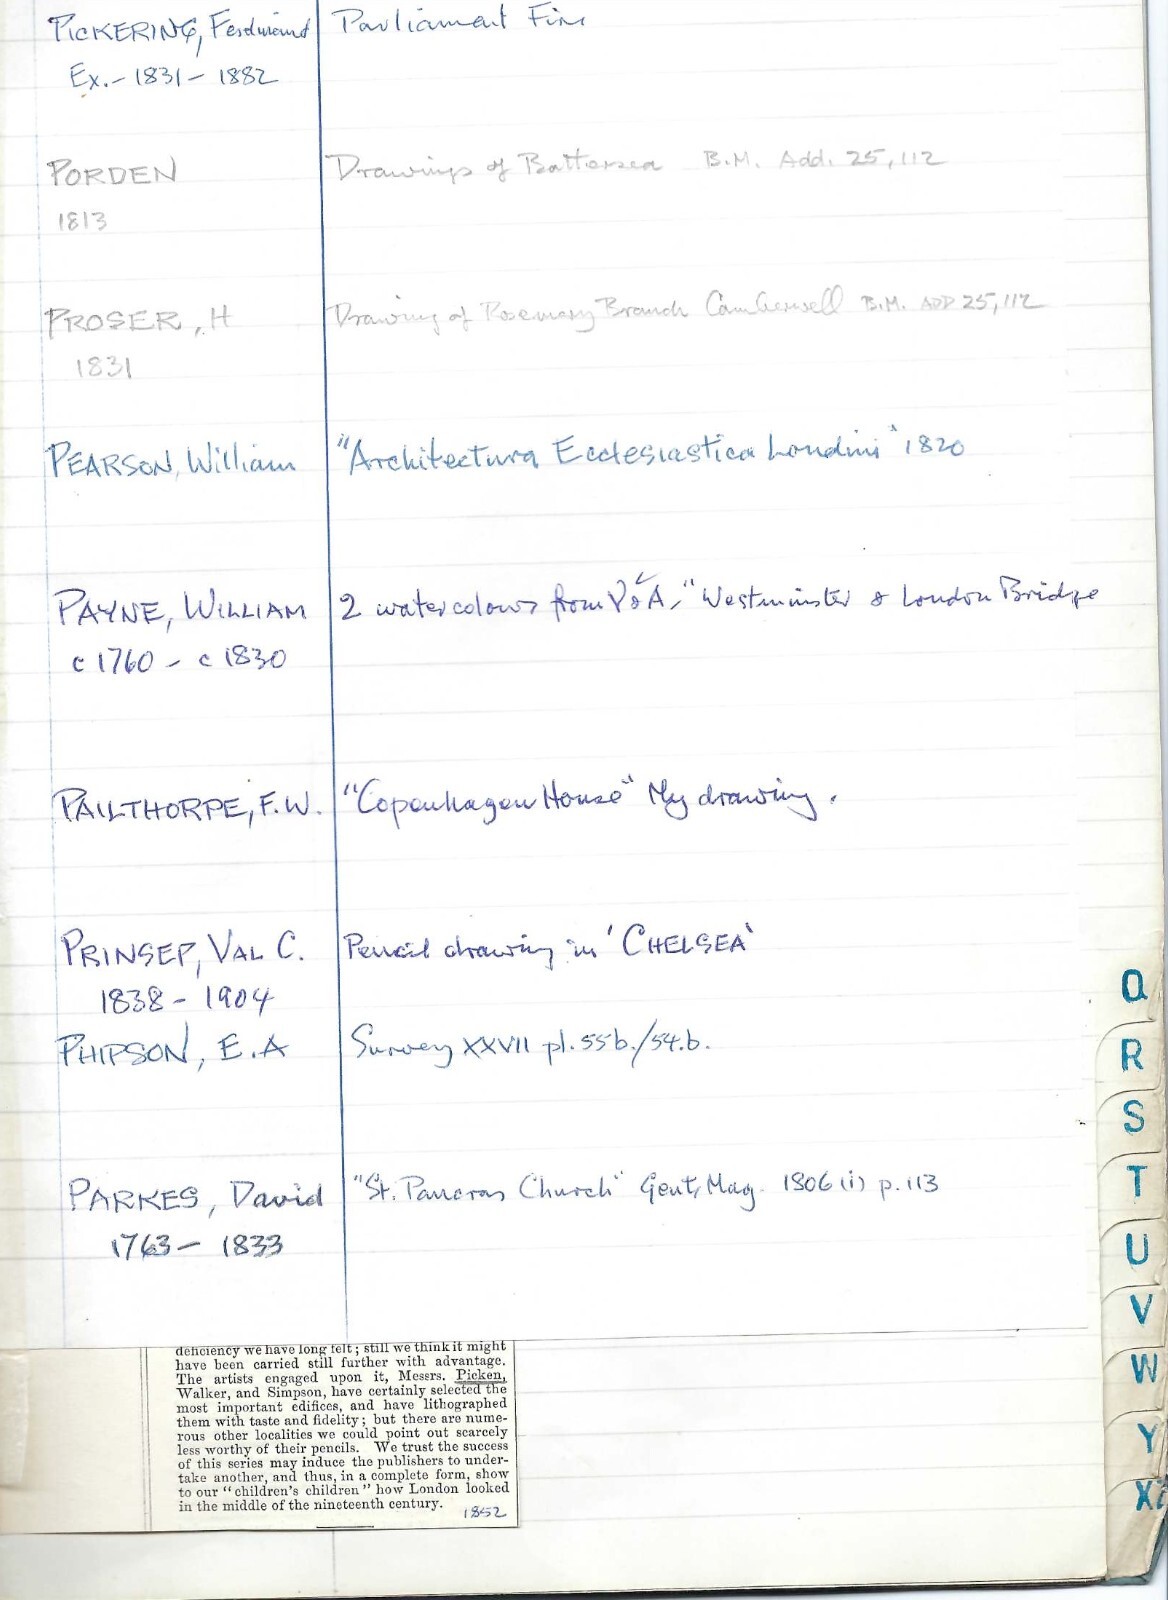 PICKERING, Ferdinand Parliament Fire
Ex. - 1831 - 1882
PORDEN Drawings of Battersea B.M. Add. 25,112
1813
PROSER, H Drawing of Rosemary Branch Camberwell B.M. ADD 25,112
1831
PEARSON, William "Architectura Ecclesiastica Londini" 1820
PAYNE, WILLIAM 2 watercolours from V & A, "Westminster & London Bridge
c 1760 - c 1830
PAILTHORPE, F.W. "Copenhagen House" My drawing.
PRINSEP, VAL C. Pencil drawing in 'CHELSEA'
1838 - 1904
PHIPSON, E.A Survey XXVII pl. 55b./54.b.
PARKES, David "St. Pancras Church" Gent. Mag. 1806 (i) p. 113
1763 - 1833
deficiency we have long felt; still we think it might
have been carried still further with advantage.
The artists engaged upon it, Messrs. Picken,
Walker, and Simpson, have certainly selected the
most important edifices, and have lithographed
them with taste and fidelity; but there are nume-
rous other localities we could point out scarcely
less worthy of their pencils. We trust the success
of this series may induce the publishers to under-
take another, and thus, in a complete form, show
to our "children's children" how London looked
in the middle of the nineteenth century.
1852
Q
R
S
T
U
V
W
Y
XZ